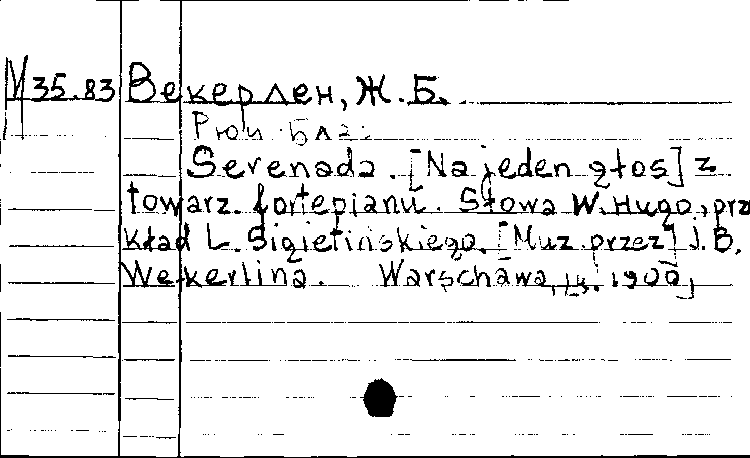 М 35.83 Векерлен, Ж. Б.
Рюи Блаз
Serenada. [Na jeden głos] z
towarz. fortepianu. Słowa W. Hugo, prze
kład L. Sigietińskiego. [Muz. przez] J. B.
Wekerlina. Warschawa, 1900,